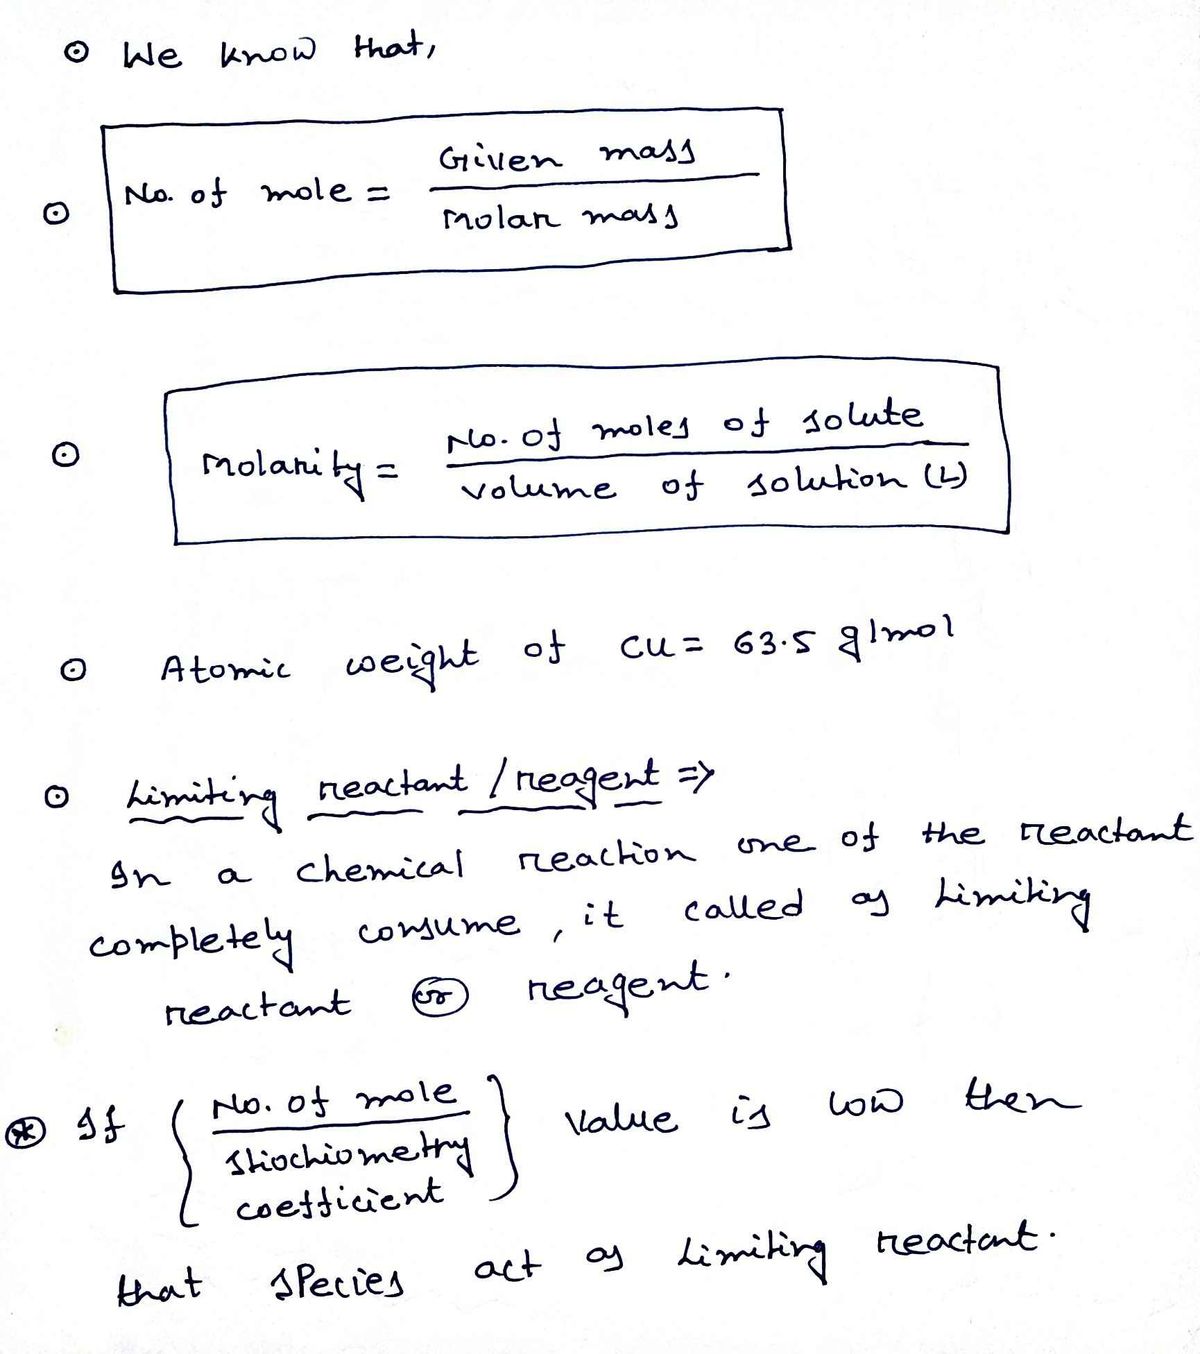 ⊙ We know that,
⊙ No. of mole = Given mass / Molar mass
⊙ Molarity = No. of moles of solute / volume of solution (L)
⊙ Atomic weight of Cu = 63.5 g/mol
⊙ Limiting reactant / reagent ⇒
In a chemical reaction one of the reactant
completely consume, it called as Limiting
reactant or reagent.
⊛ If { No. of mole / stiochiometry coefficient } value is low then
that species act as Limiting reactant.